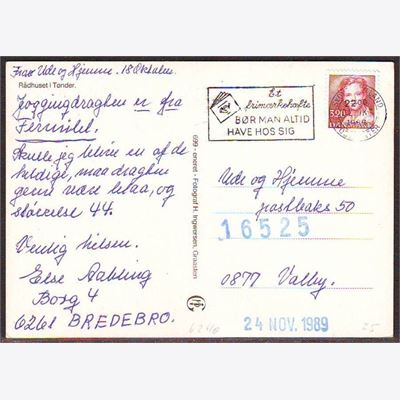 Fra Ude og Hjemme. 18 Oktober.
Rådhuset i Tønder.
Joggingdragten er fra
Fermilet.
Skulle jeg blive en af de
heldige, maa dragten
gerne være blaa, og
størrelse 44.
Venlig hilsen.
Else Aabling
Borg 4
6261 BREDEBRO.
699 Eneret - Fotograf H. Ingwersen, Graasten
Et
frimærkehæfte
BØR MAN ALTID
HAVE HOS SIG
3.20
DANMARK
Ude og Hjemme
postboks 50
16525
0877 Valby.
24 NOV. 1989
6240
25